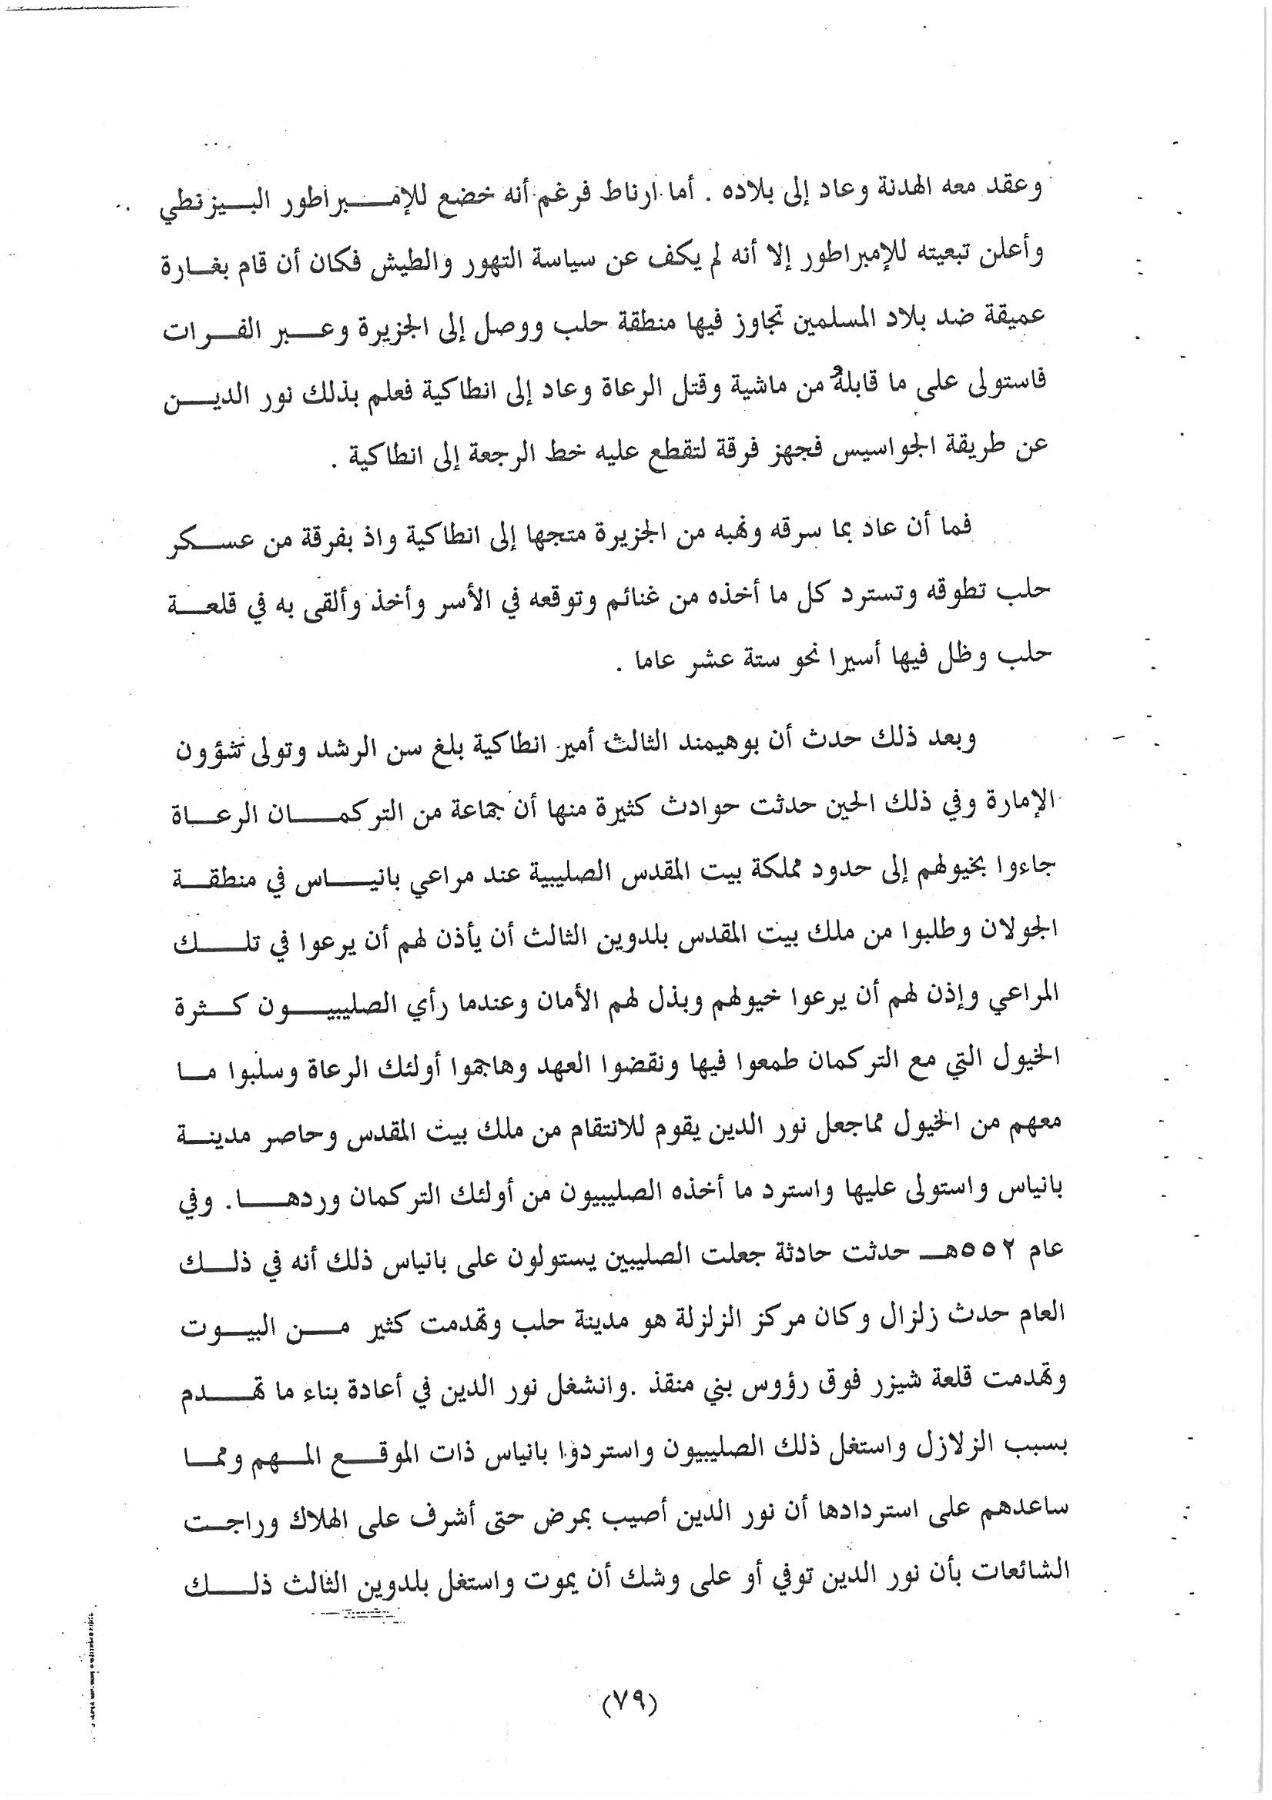 وعقد معه الهدنة وعاد إلى بلاده . أما ارناط فرغم أنه خضع للإمبراطور البيزنطي
وأعلن تبعيته للإمبراطور إلا أنه لم يكف عن سياسة التهور والطيش فكان أن قام بغارة
عميقة ضد بلاد المسلمين تجاوز فيها منطقة حلب ووصل إلى الجزيرة وعبر الفرات
فاستولى على ما قابله من ماشية وقتل الرعاة وعاد إلى انطاكية فعلم بذلك نور الدين
عن طريقة الجواسيس فجهز فرقة لتقطع عليه خط الرجعة إلى انطاكية .
فما أن عاد بما سرقه ونهبه من الجزيرة متجها إلى انطاكية واذ بفرقة من عسكر
حلب تطوقه وتسترد كل ما أخذه من غنائم وتوقعه في الأسر وأخذ وألقى به في قلعة
حلب وظل فيها أسيرا نحو ستة عشر عاما .
وبعد ذلك حدث أن بوهيمند الثالث أمير انطاكية بلغ سن الرشد وتولى شؤون
الإمارة وفي ذلك الحين حدثت حوادث كثيرة منها أن جماعة من التركمان الرعاة
جاءوا بخيولهم إلى حدود مملكة بيت المقدس الصليبية عند مراعي بانياس في منطقة
الجولان وطلبوا من ملك بيت المقدس بلدوين الثالث أن يأذن لهم أن يرعوا في تلك
المراعي وإذن لهم أن يرعوا خيولهم وبذل لهم الأمان وعندما رأي الصليبيون كثرة
الخيول التي مع التركمان طمعوا فيها ونقضوا العهد وهاجموا أولئك الرعاة وسلبوا ما
معهم من الخيول مماجعل نور الدين يقوم للانتقام من ملك بيت المقدس وحاصر مدينة
بانياس واستولى عليها واسترد ما أخذه الصليبيون من أولئك التركمان وردها. وفي
عام ٥٥٢هـ حدثت حادثة جعلت الصليبين يستولون على بانياس ذلك أنه في ذلك
العام حدث زلزال وكان مركز الزلزلة هو مدينة حلب وتهدمت كثير من البيوت
وتهدمت قلعة شيزر فوق رؤوس بني منقذ .وانشغل نور الدين في أعادة بناء ما تهدم
بسبب الزلازل واستغل ذلك الصليبيون واستردوا بانياس ذات الموقع المهم ومما
ساعدهم على استردادها أن نور الدين أصيب بمرض حتى أشرف على الهلاك وراجت
الشائعات بأن نور الدين توفي أو على وشك أن يموت واستغل بلدوين الثالث ذلك
(٧٩)